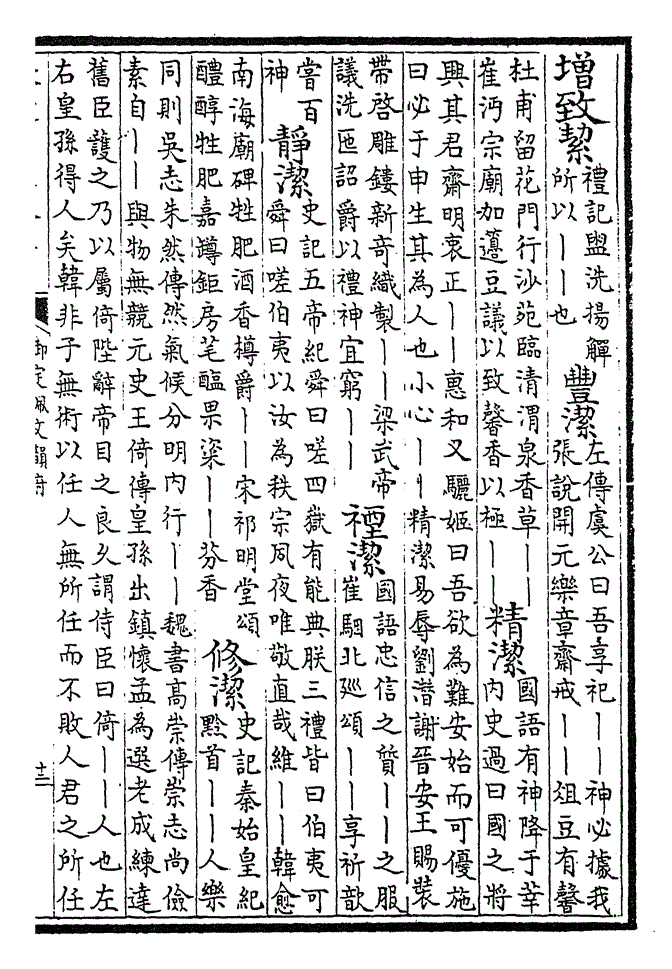 增致絜禮記盥洗揚觶
所以――也
豐潔左傳虞公曰吾享祀――神必據我
張說開元樂章齋戒――俎豆有馨
杜甫留花門行沙苑臨清渭泉香草――
崔沔宗廟加籩豆議以致馨香以極――
精潔國語有神降于莘
內史過曰國之將
興其君齋明衷正――惠和又驪姬曰吾欲為難安始而可優施
曰必于申生其為人也小心――精潔易辱劉潛謝晉安王賜裝
帶啓雕鏤新奇織製――梁武帝
議洗匜詔爵以禮神宜窮――
禋潔國語忠信之質――之服
崔駰北廵頌――享祈歆
嘗百
神
靜潔史記五帝紀舜曰嗟四嶽有能典朕三禮皆曰伯夷可
舜曰嗟伯夷以汝為秩宗夙夜唯敬直哉維――韓愈
南海廟碑牲肥酒香樽爵――宋祁明堂頌
醴醇牲肥嘉罇鉅房芼醢果粢――芬香
修潔史記秦始皇紀
黔首――人樂
同則吳志朱然傳然氣候分明內行――魏書高崇傳崇志尚儉
素自――與物無競元史王倚傳皇孫出鎮懷孟為選老成練達
舊臣護之乃以屬倚陛辭帝目之良久謂侍臣曰倚――人也左
右皇孫得人矣韓非子無術以任人無所任而不敗人君之所任
御定佩文韻府